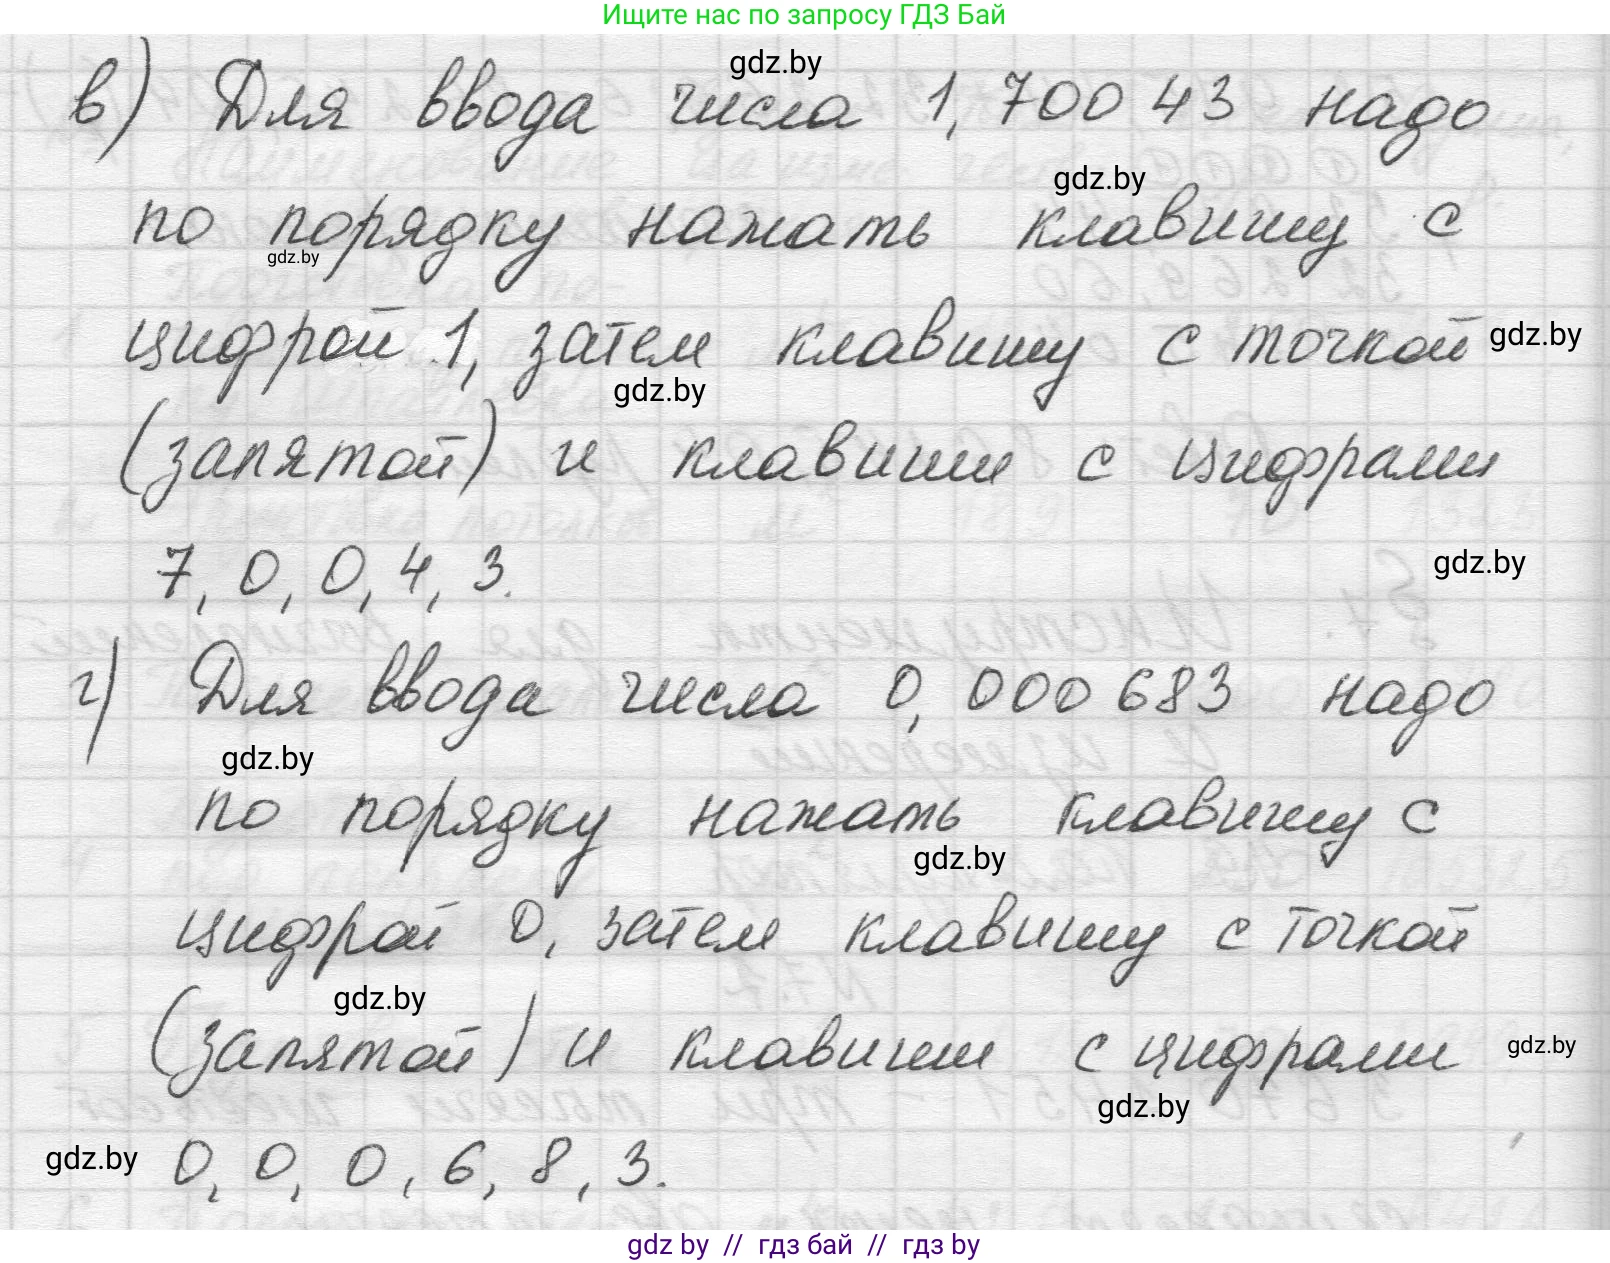 Ищите нас по запросу ГДЗ Бай
gdz.by
в) Для ввода числа 1,70043 надо
gdz.by
по порядку нажать клавишу с
gdz.by
цифрой 1, затем клавишу с точкой
gdz.by
gdz.by
(запятой) и клавиши с цифрами
7, 0, 0, 4, 3.
gdz.by
г) Для ввода числа 0,000683 надо
gdz.by
по порядку нажать клавишу с
gdz.by
цифрой 0, затем клавишу с точкой
gdz.by
(запятой) и клавиши с цифрами
gdz.by
gdz.by
gdz.by
0, 0, 0, 6, 8, 3.
gdz by // гдз бай // гдз by